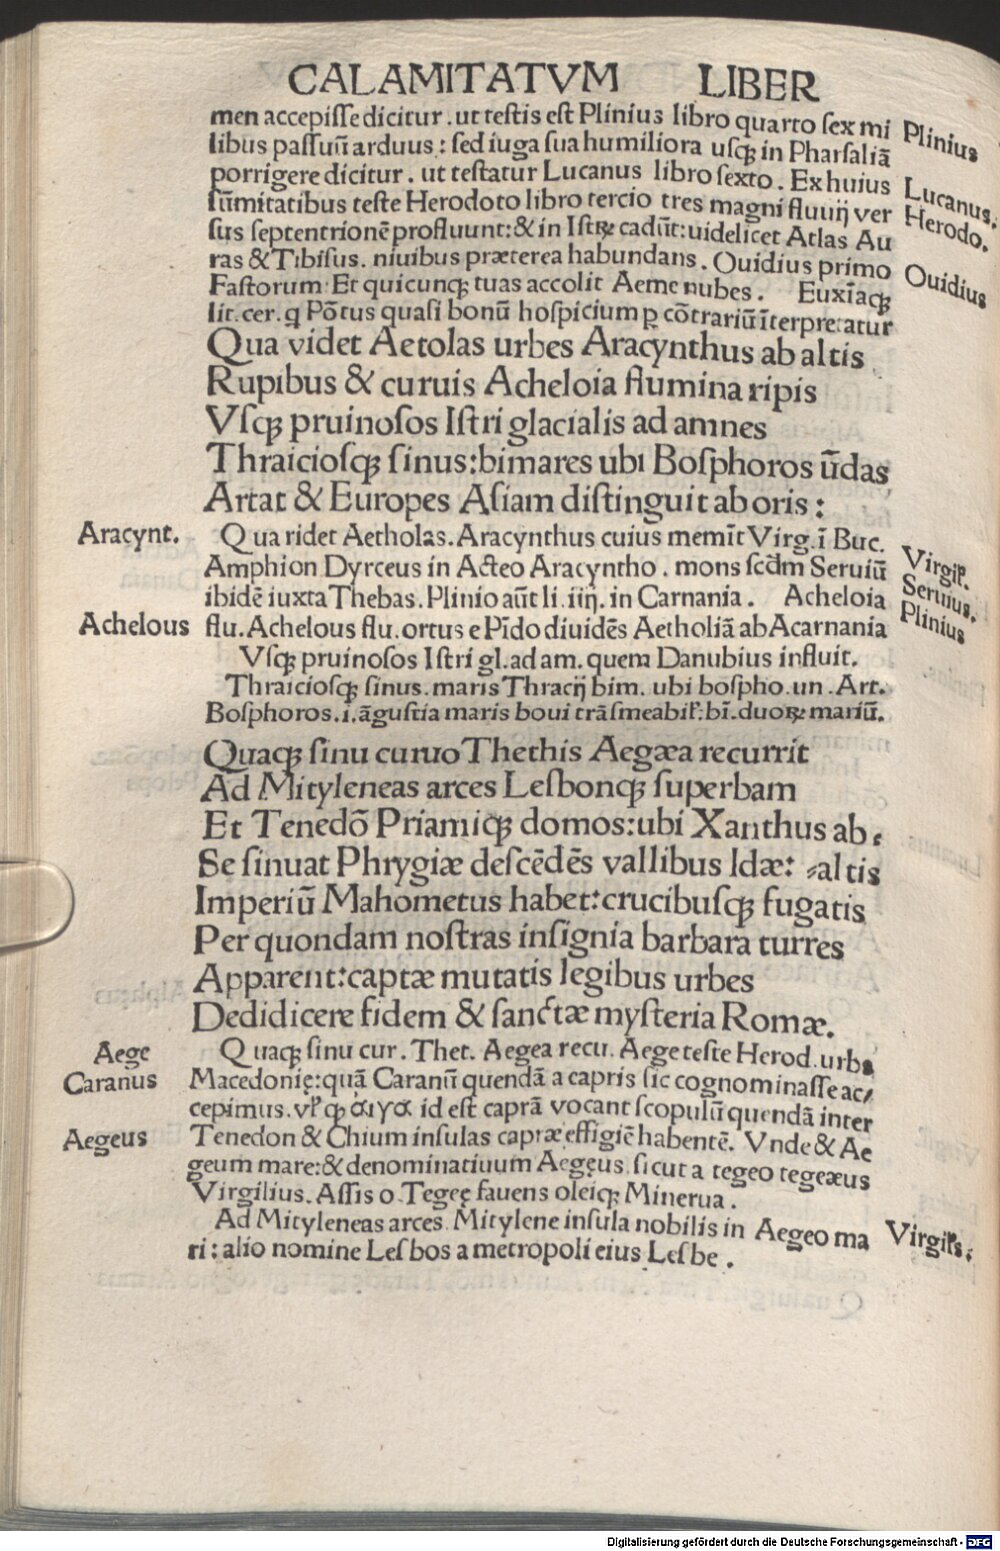 CALAMITATVM LIBER
men accepiſſe dicitur . ut teſtis eſt Plinius libro quarto ſex mi
Plinius
libus paſſuū arduus : ſed iuga ſua humiliora uſqꝫ in Pharſaliā
porrigere dicitur . ut teſtatur Lucanus libro ſexto . Ex huius
Lucanus.
ſūmitatibus teſte Herodoto libro tercio tres magni fluuij ver
Herodo.
ſus ſeptentrionē profluunt: & in Iſtꝝ cadūt: uidelicet Atlas Au
ras & Tibiſus. niuibus præterea habundans . Ouidius primo
Ouidius
Faſtorum Et quicunqꝫ tuas accolit Aeme nubes . Euxīaqꝫ
lit. cer. q Pōtus quaſi bonū hoſpicium ꝑ cōtrariū īterpretatur
Qua videt Aetolas urbes Aracynthus ab altis
Rupibus & curuis Acheloia flumina ripis
Vſqꝫ pruinoſos Iſtri glacialis ad amnes
Thraicioſqꝫ ſinus: bimares ubi Boſphoros ūdas
Artat & Europes Aſiam diſtinguit ab oris :
Aracynt.
Qua ridet Aetholas. Aracynthus cuius memīt Virg. ī Buc.
Virgiꝉ.
Amphion Dyrceus in Acteo Aracyntho . mons ſcd̄m Seruiū
Seruius.
ibidē iuxta Thebas. Plinio aūt li. iiij. in Carnania . Acheloia
Plinius
Achelous
flu. Achelous flu. ortus e Pīdo diuidēs Aetholiā ab Acarnania
Vſqꝫ pruinoſos Iſtri gl. ad am. quem Danubius influit.
Thraicioſqꝫ ſinus. maris Thracij bim. ubi boſpho. un . Art.
Boſphoros. i. āguſtia maris boui trāſmeabiꝉ. bī. duoꝝ mariū.
Quaqꝫ ſinu curuo Thethis Aegæa recurrit
Ad Mityleneas arces Leſbonqꝫ ſuperbam
Et Tenedō Priamiqꝫ domos: ubi Xanthus ab
Se ſinuat Phrygiæ deſcēdēs vallibus Idæ: ⸗altis
Imperiū Mahometus habet: crucibuſqꝫ fugatis
Per quondam noſtras inſignia barbara turres
Apparent: captæ mutatis legibus urbes
Dedidicere fidem & ſanctæ myſteria Romæ.
Aege
Quaqꝫ ſinu cur. Thet. Aegea recu. Aege teſte Herod. urbs
Caranus
Macedonię: quā Caranū quendā a capris ſic cognominaſſe ac⸗
cepimus. vꝉ ꝙ αιγα id eſt caprā vocant ſcopulū quendā inter
Aegeus
Tenedon & Chium inſulas capræ effigiē habentē. Vnde & Ae
geum mare: & denominatiuum Aegęus. ſicut a tegeo tegeæus
Virgilius. Aſſis o Tegeę fauens oleiqꝫ Minerua .
Ad Mityleneas arces. Mitylene inſula nobilis in Aegeo ma
Virgiꝉs.
ri: alio nomine Leſbos a metropoli eius Leſbe .
Digitalisierung gefördert durch die Deutsche Forschungsgemeinschaft - DFG